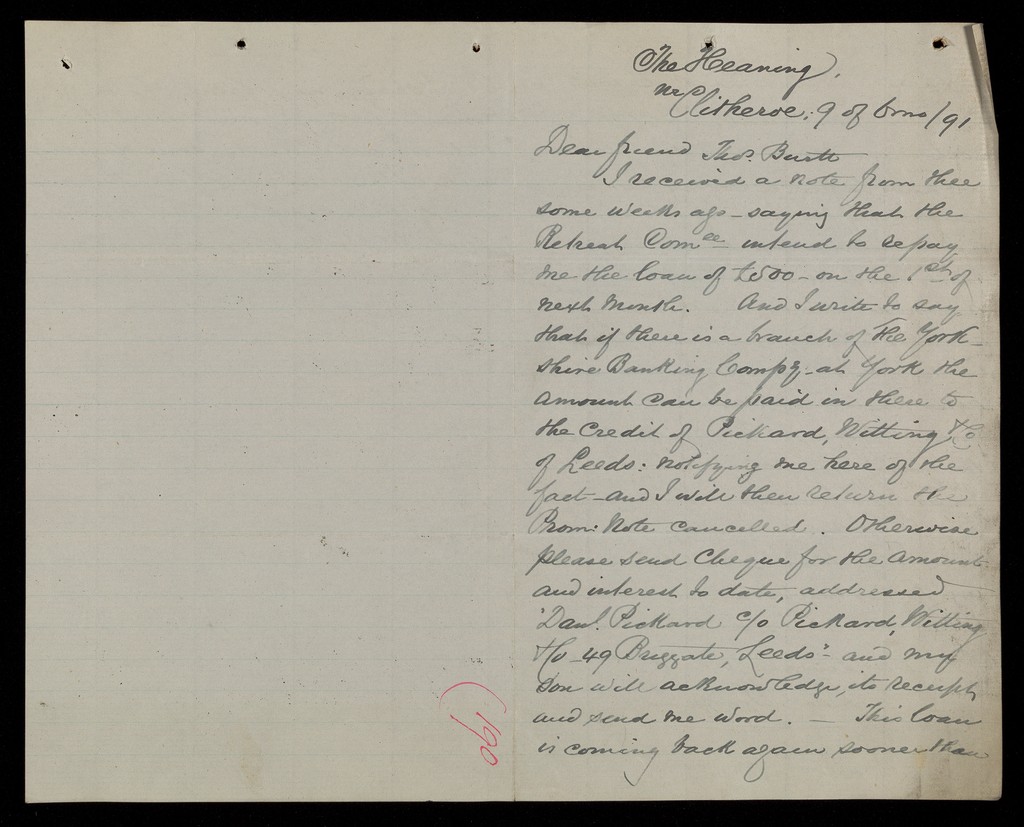 The Heaning,
nr Clitheroe; 9 of 6mo/91
Dear friend Thos. Burtt
I received a note from thee
some weeks ago - saying that the
Retreat Comee intend to repay
me the loan of £500 - on the 1st of
next month. And I write to say
that if there is a branch of The York-
shire Banking Compy - at York the
amount can be paid in there to
the credit of Pickard, Witting & Co
of Leeds: notifying me here of the
fact - and I will then return the
Prom: Note cancelled. Otherwise
please send Cheque for the amount
and interest to date, addressed
"Danl. Pickard c/o Pickard, Witting
& Co - 49 Briggate, Leeds" - and my
son will acknowledge its receipt,
and send me word. - This loan
is coming back again sooner than
(190